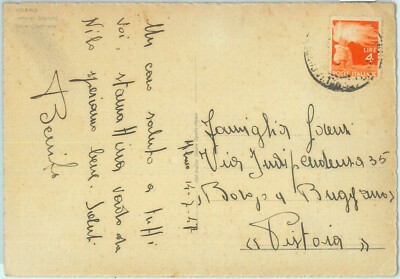 Un caro saluto a tutti
voi, stamattina vado da
Nilo speriamo bene. Saluti
Benito
14-7-47
Famiglia
Via Indipendenza 35
(Borgo a Buggiano)
« Pistoia »
LIRE
4
POSTE ITALIANE